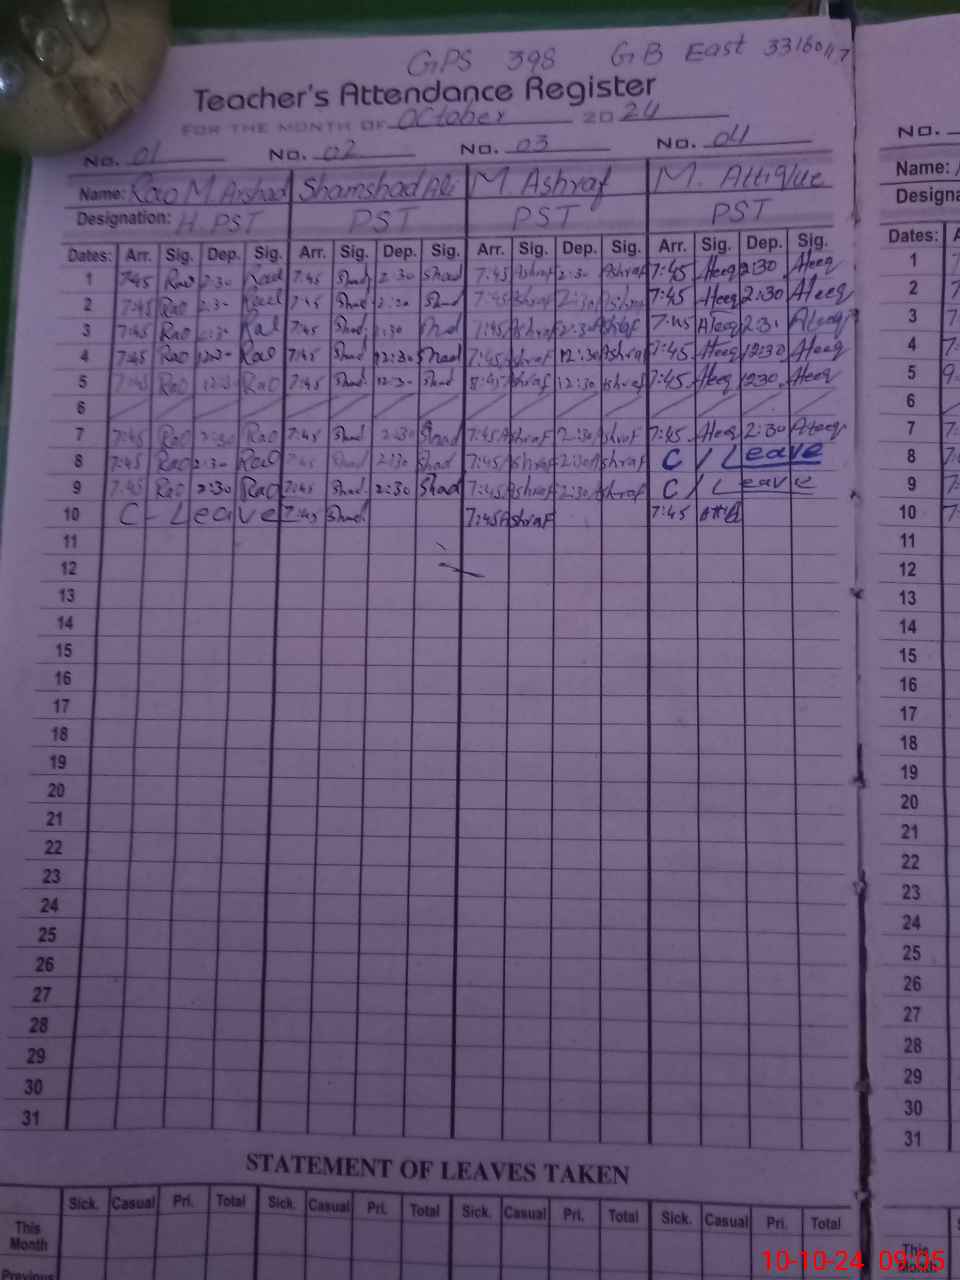 GPS 398 GB East 33160117
Teacher's Attendance Register
FOR THE MONTH OF October 2024
No. 01 No. 02 No. 03 No. 04 No.
Name: Rao M Arshad Shamshad Ali M Ashraf M. Attique Name:
Designation: H. PST PST PST PST
Dates: Arr. Sig. Dep. Sig. Arr. Sig. Dep. Sig. Arr. Sig. Dep. Sig. Arr. Sig. Dep. Sig. Dates:
1 7:45 Rao 2:30 7:45 Shad 2:30 Shad 7:45 Ashraf 2:30 Ashraf 7:45 Ateeq 2:30 Ateeq 1
2 7:45 Rao 2:30 7:45 Shad 2:30 Shad 7:45 Ashraf 2:30 Ashraf 7:45 Ateeq 2:30 Ateeq 2
3 7:45 Rao 2:30 7:45 Shad 2:30 Shad 7:45 Ashraf 2:30 Ashraf 7:45 Ateeq 2:30 Ateeq 3
4 7:45 Rao 12:30 Rao 7:45 Shad 12:30 Shad 7:45 Ashraf 12:30 Ashraf 7:45 Ateeq 12:30 Ateeq 4
5 7:45 Rao 12:30 Rao 7:45 Shad 12:30 Shad Ashraf 12:30 Ashraf 7:45 Ateeq 12:30 Ateeq 5
6 6
7 7:45 Rao 2:30 Rao 7:45 Shad 2:30 Shad 7:45 Ashraf 2:30 Ashraf 7:45 Ateeq 2:30 Ateeq 7
8 7:45 Rao 2:30 Rao 7:45 Shad 2:30 Shad 7:45 Ashraf 2:30 Ashraf C/Leave 8
9 7:45 Rao 2:30 Rao 7:45 Shad 2:30 Shad 7:45 Ashraf 2:30 Ashraf C/Leave 9
10 C-Leave 7:45 Shad 7:45 Ashraf 7:45 10
11 11
12 12
13 13
14 14
15 15
16 16
17 17
18 18
19 19
20 20
21 21
22 22
23 23
24 24
25 25
26 26
27 27
28 28
29 29
30 30
31 31
STATEMENT OF LEAVES TAKEN
Sick. Casual Pri. Total Sick. Casual Pri. Total Sick. Casual Pri. Total Sick. Casual Pri. Total
This Month This Month
Previous
10-10-24 09:05